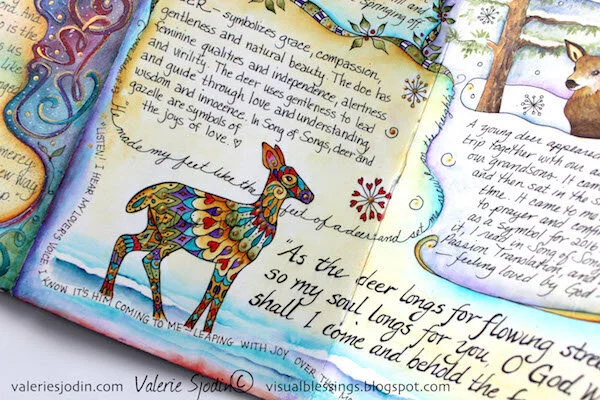 springing of
DEER – symbolizes grace, compassion,
gentleness and natural beauty. The doe has
feminine qualities and independence, alertness
and virility. The deer uses gentleness to lead
and guide through love and understanding,
wisdom and innocence. In Song of Songs, deer and
gazelle are symbols of
the joys of love. ♡
"He made my feet like the feet of a deer and set me
LISTEN! I HEAR MY LOVER'S VOICE. I KNOW IT'S HIM COMING TO ME – LEAPING WITH JOY OVER THE
"As the deer longs for flowing
so my soul longs for you O God.
shall I come and behold the
A young deer appeared
trip together with our
our grandsons. It came
and then sat in the
time. It came to me
to prayer and
as a symbol for 2016
it, I read in Song of
Passion Translation, and
– feeling loved by God
valeriesjodin.com Valerie Sjodin © visualblessings.blogspot.com